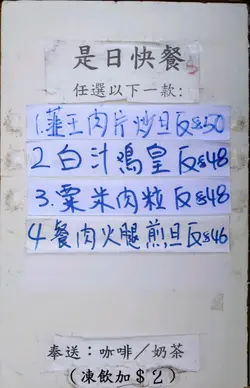 是日快餐
任選以下一款:
1.韮王肉片炒旦反$50
2.白汁鸡皇反$48
3.粟米肉粒反$48
4.餐肉火腿煎旦反$46
奉送:咖啡/奶茶
(凍飲加$2)